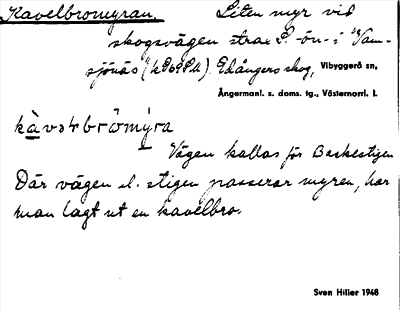 Kavelbromyran. Liten myr vid
skogsvägen strax S. -ön- i "Vam-
sjönäs" Edångers skog, Vibyggerå sn,
Ångermanl. s. doms. tg., Västernorrl. l.
kàvəɫbrömýra
Vägen kallas för Baskestigen
Där vägen el. stigen passerar myren, har
man lagt ut en kavelbro.
Sven Hiller 1948